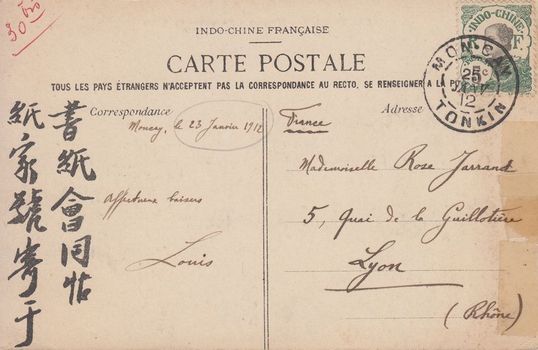 30 bis
INDO-CHINE FRANÇAISE
CARTE POSTALE
TOUS LES PAYS ÉTRANGERS N'ACCEPTENT PAS LA CORRESPONDANCE AU RECTO. SE RENSEIGNER A LA P
Correspondance
Adresse
Moncay, le 23 Janvier 1912
Affectueux baisers
Louis
France
Mademoiselle Rose Jarrand
5, Quai de la Guillotière
Lyon
(Rhône)
書紙會同帖
紙家號寄于
INDO-CHINE
MONCAY
25
JANV
12
TONKIN